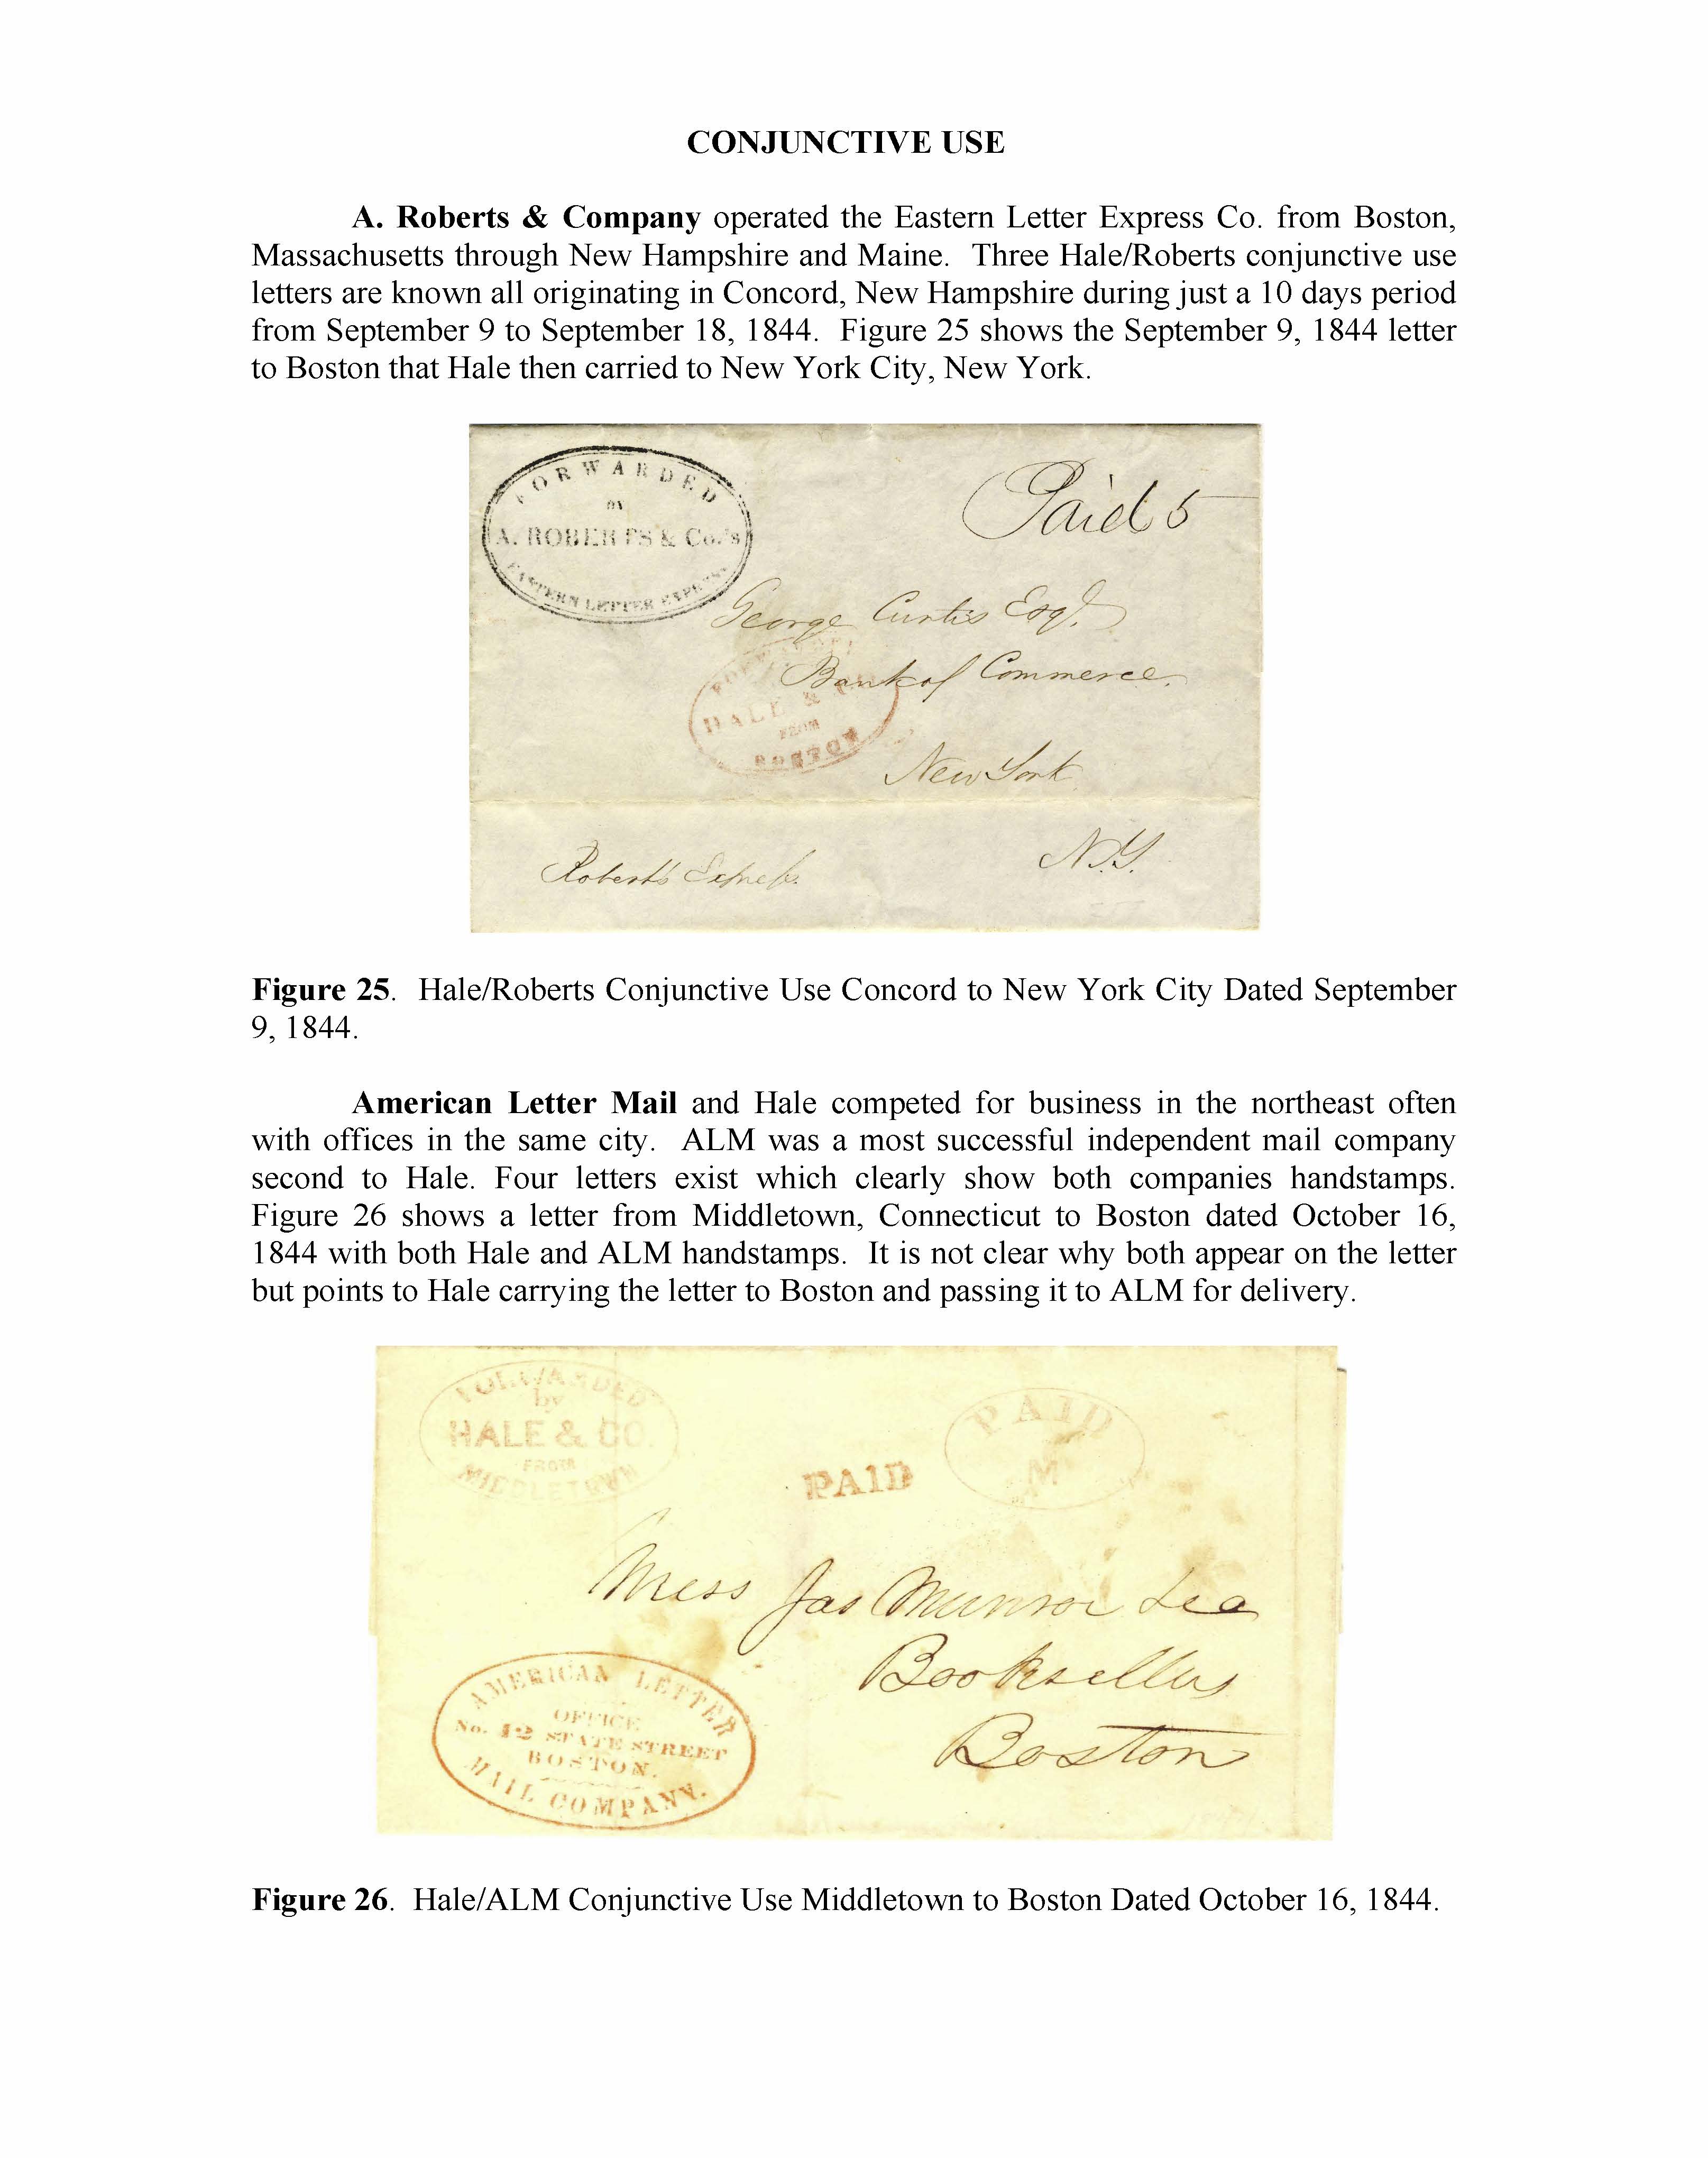 CONJUNCTIVE USE
A. Roberts & Company operated the Eastern Letter Express Co. from Boston,
Massachusetts through New Hampshire and Maine. Three Hale/Roberts conjunctive use
letters are known all originating in Concord, New Hampshire during just a 10 days period
from September 9 to September 18, 1844. Figure 25 shows the September 9, 1844 letter
to Boston that Hale then carried to New York City, New York.
FORWARDED
BY
A. ROBERTS & Co.'s
EASTERN LETTER EXPRESS
Paid 5
George Curtis Esqr.
Bank of Commerce
HALE & CO
FROM
BOSTON
New York
N.Y.
Roberts Express
Figure 25. Hale/Roberts Conjunctive Use Concord to New York City Dated September
9, 1844.
American Letter Mail and Hale competed for business in the northeast often
with offices in the same city. ALM was a most successful independent mail company
second to Hale. Four letters exist which clearly show both companies handstamps.
Figure 26 shows a letter from Middletown, Connecticut to Boston dated October 16,
1844 with both Hale and ALM handstamps. It is not clear why both appear on the letter
but points to Hale carrying the letter to Boston and passing it to ALM for delivery.
FORWARDED
by
HALE & CO.
FROM
MIDDLETOWN
PAID
PAID
M
Mess Jas Munroe &co
Booksellers
Boston
AMERICAN LETTER
OFFICE
No. 12 STATE STREET
BOSTON.
MAIL COMPANY.
Figure 26. Hale/ALM Conjunctive Use Middletown to Boston Dated October 16, 1844.